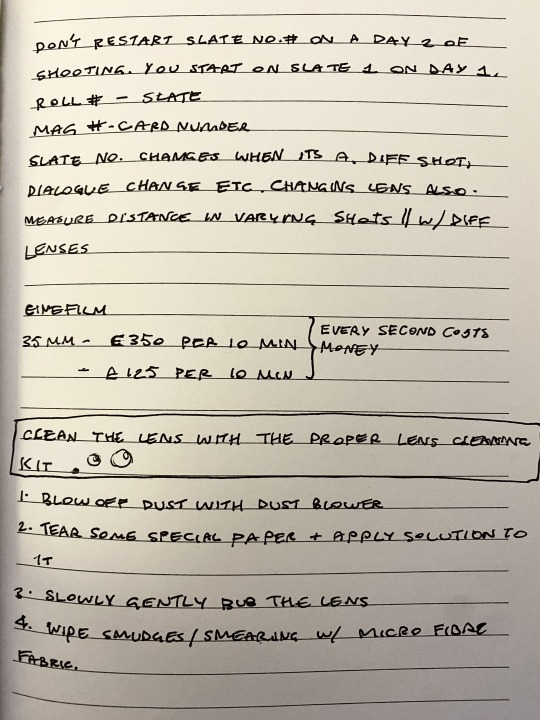 DON'T RESTART SLATE NO.# ON A DAY 2 OF
SHOOTING. YOU START ON SLATE 1 ON DAY 1.
ROLL # - SLATE
MAG # - CARD NUMBER
SLATE NO. CHANGES WHEN ITS A DIFF SHOT,
DIALOGUE CHANGE ETC. CHANGING LENS ALSO.
MEASURE DISTANCE IN VARYING SHOTS // W/ DIFF
LENSES
CINEFILM
35MM - £350 PER 10 MIN } EVERY SECOND COSTS
MONEY
- £125 PER 10 MIN
CLEAN THE LENS WITH THE PROPER LENS CLEANING
KIT.
1. BLOW OFF DUST WITH DUST BLOWER
2. TEAR SOME SPECIAL PAPER + APPLY SOLUTION TO
IT
3. SLOWLY GENTLY RUB THE LENS
4. WIPE SMUDGES/SMEARING W/ MICRO FIBRE
FABRIC.